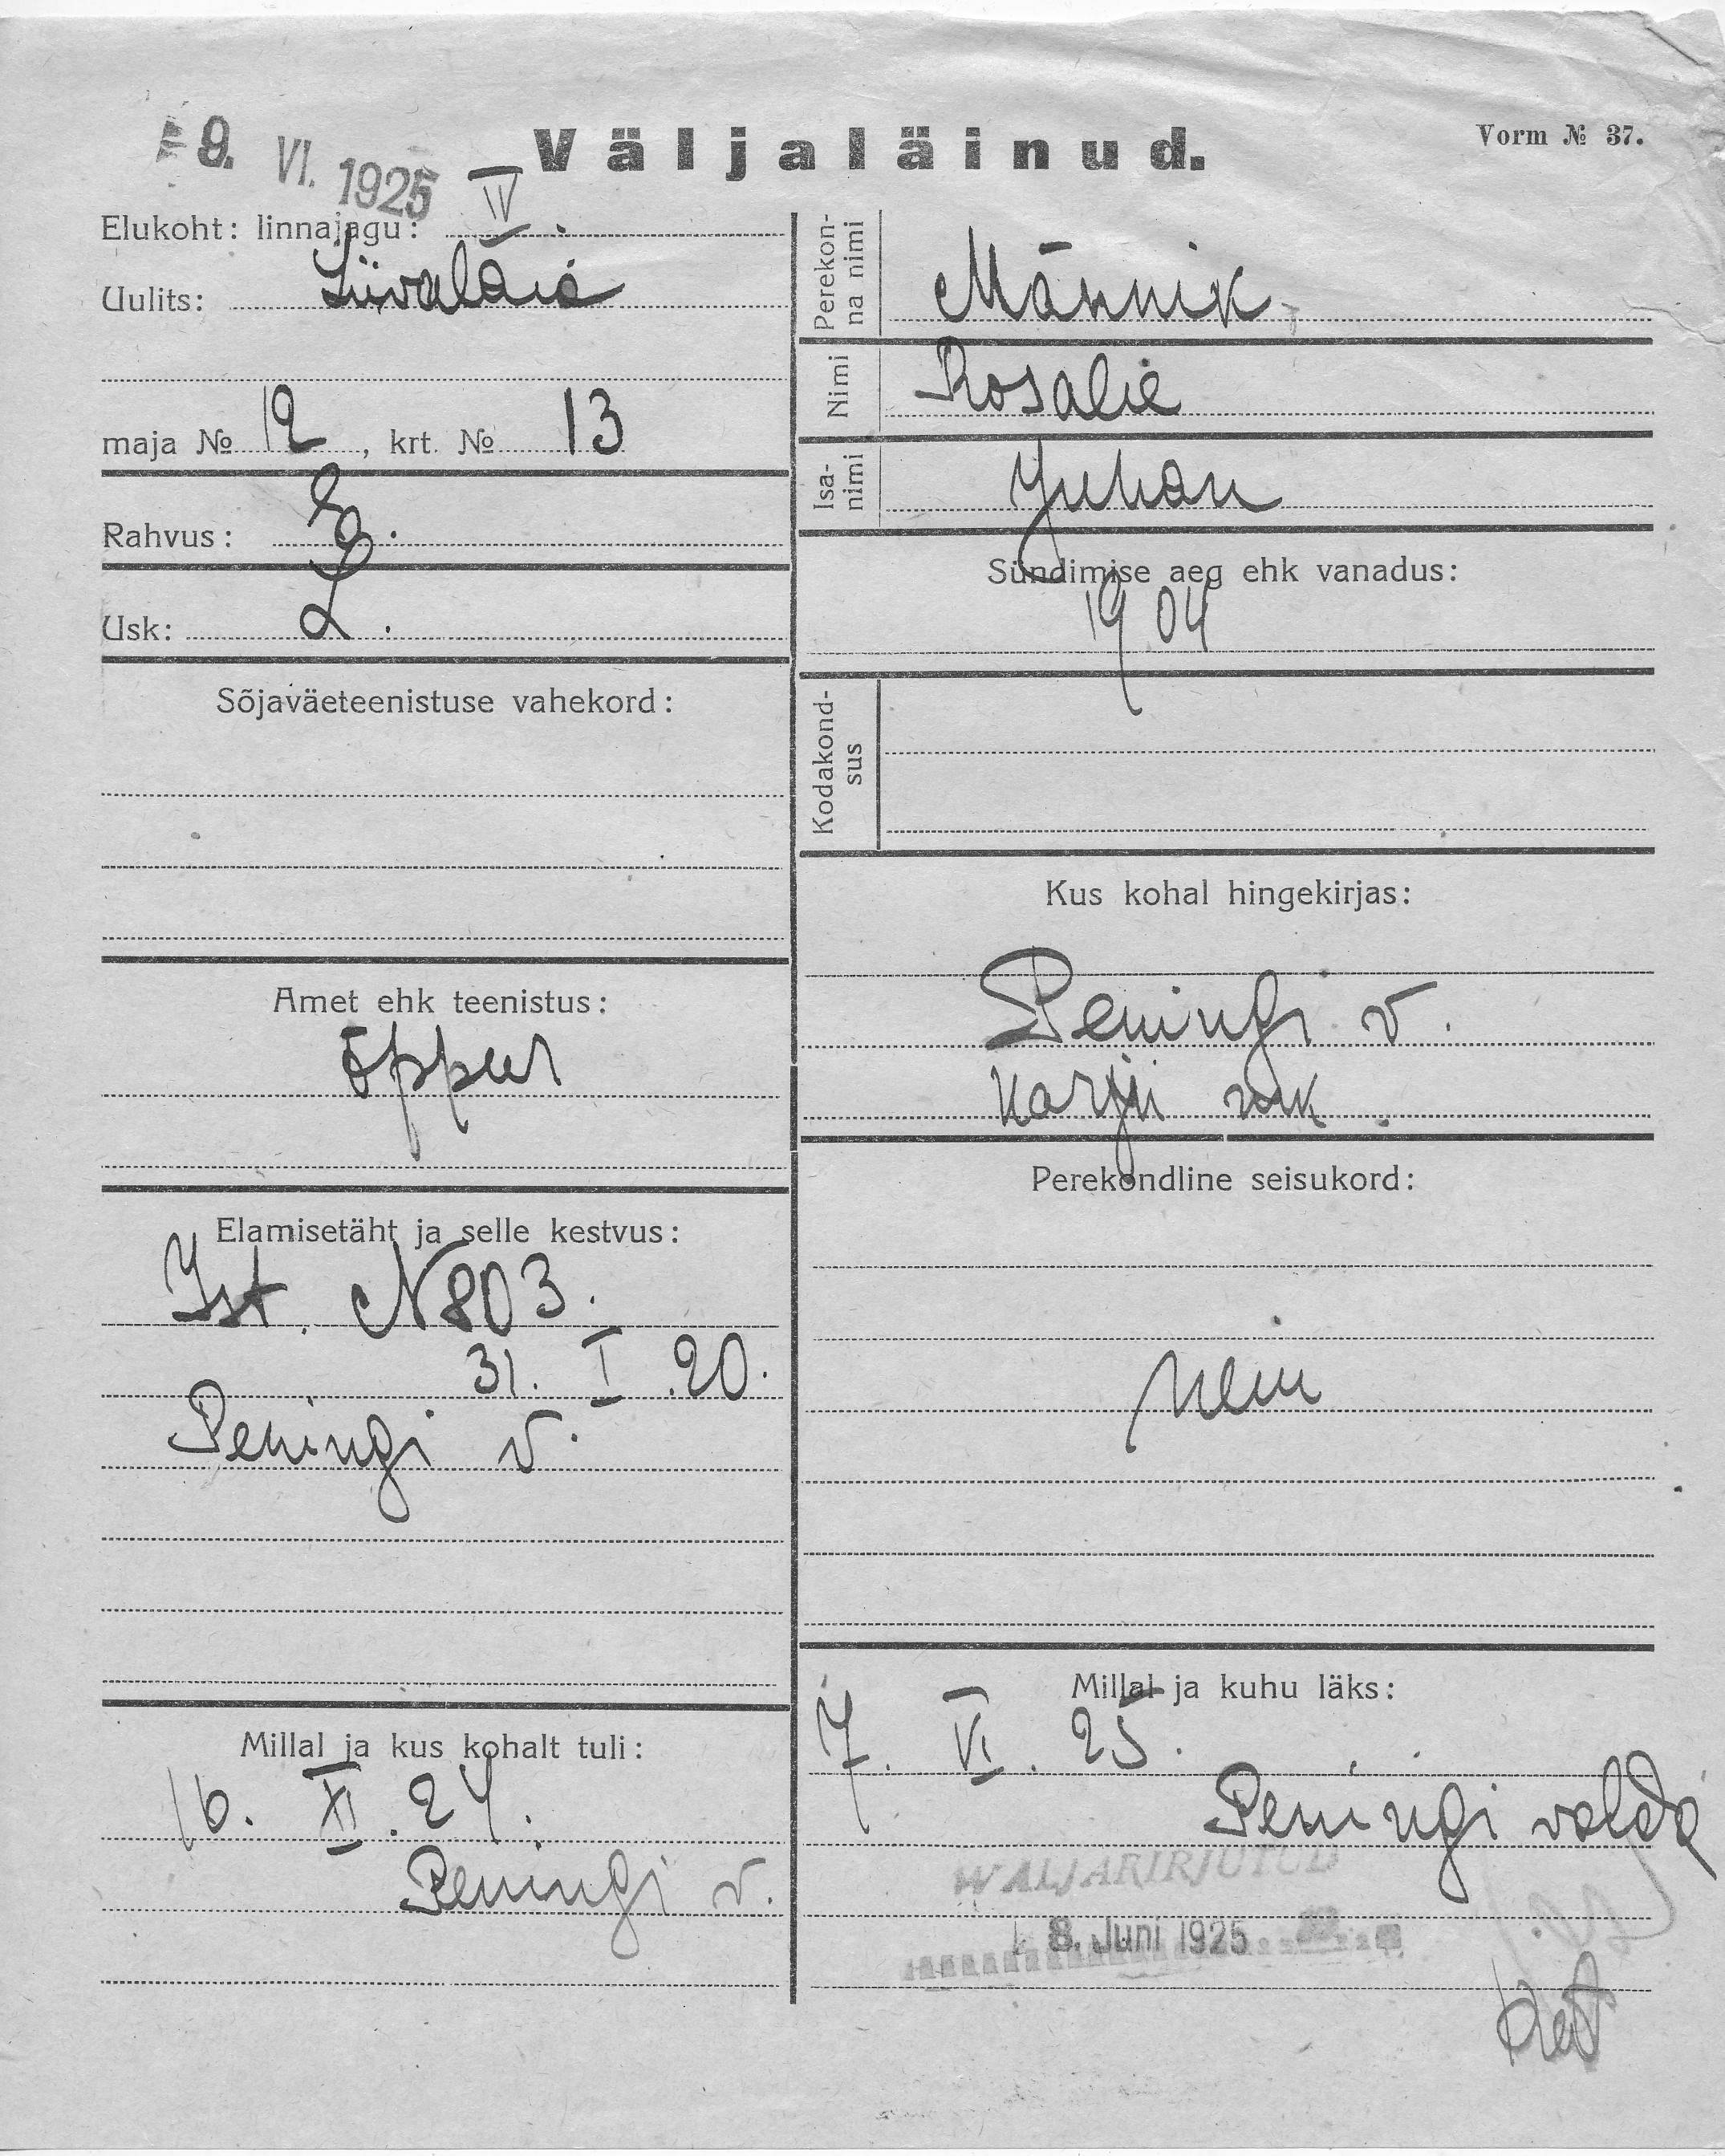 9. VI. 1925
Väljaläinud.
Vorm № 37.
Elukoht: linnajagu: IV.
Uulits: Liivalaia
maja № 12, krt. № 13
Rahvus: E.
Usk: L.
Sõjaväeteenistuse vahekord:
Amet ehk teenistus:
õppur
Elamisetäht ja selle kestvus:
Ist. N 803.
31. I. 20.
Peningi v.
Millal ja kus kohalt tuli:
16. XI. 24.
Peningi v.
Perekonna nimi
Männik
Nimi
Rosalie
Isanimi
Juhan
Sündimise aeg ehk vanadus:
1904
Kodakondsus
Kus kohal hingekirjas:
Peningi v.
Harju mk.
Perekondline seisukord:
neiu
Millal ja kuhu läks:
7. VI. 25.
Peningi valda
WÄLJAKIRJUTUD
8. Juni 1925